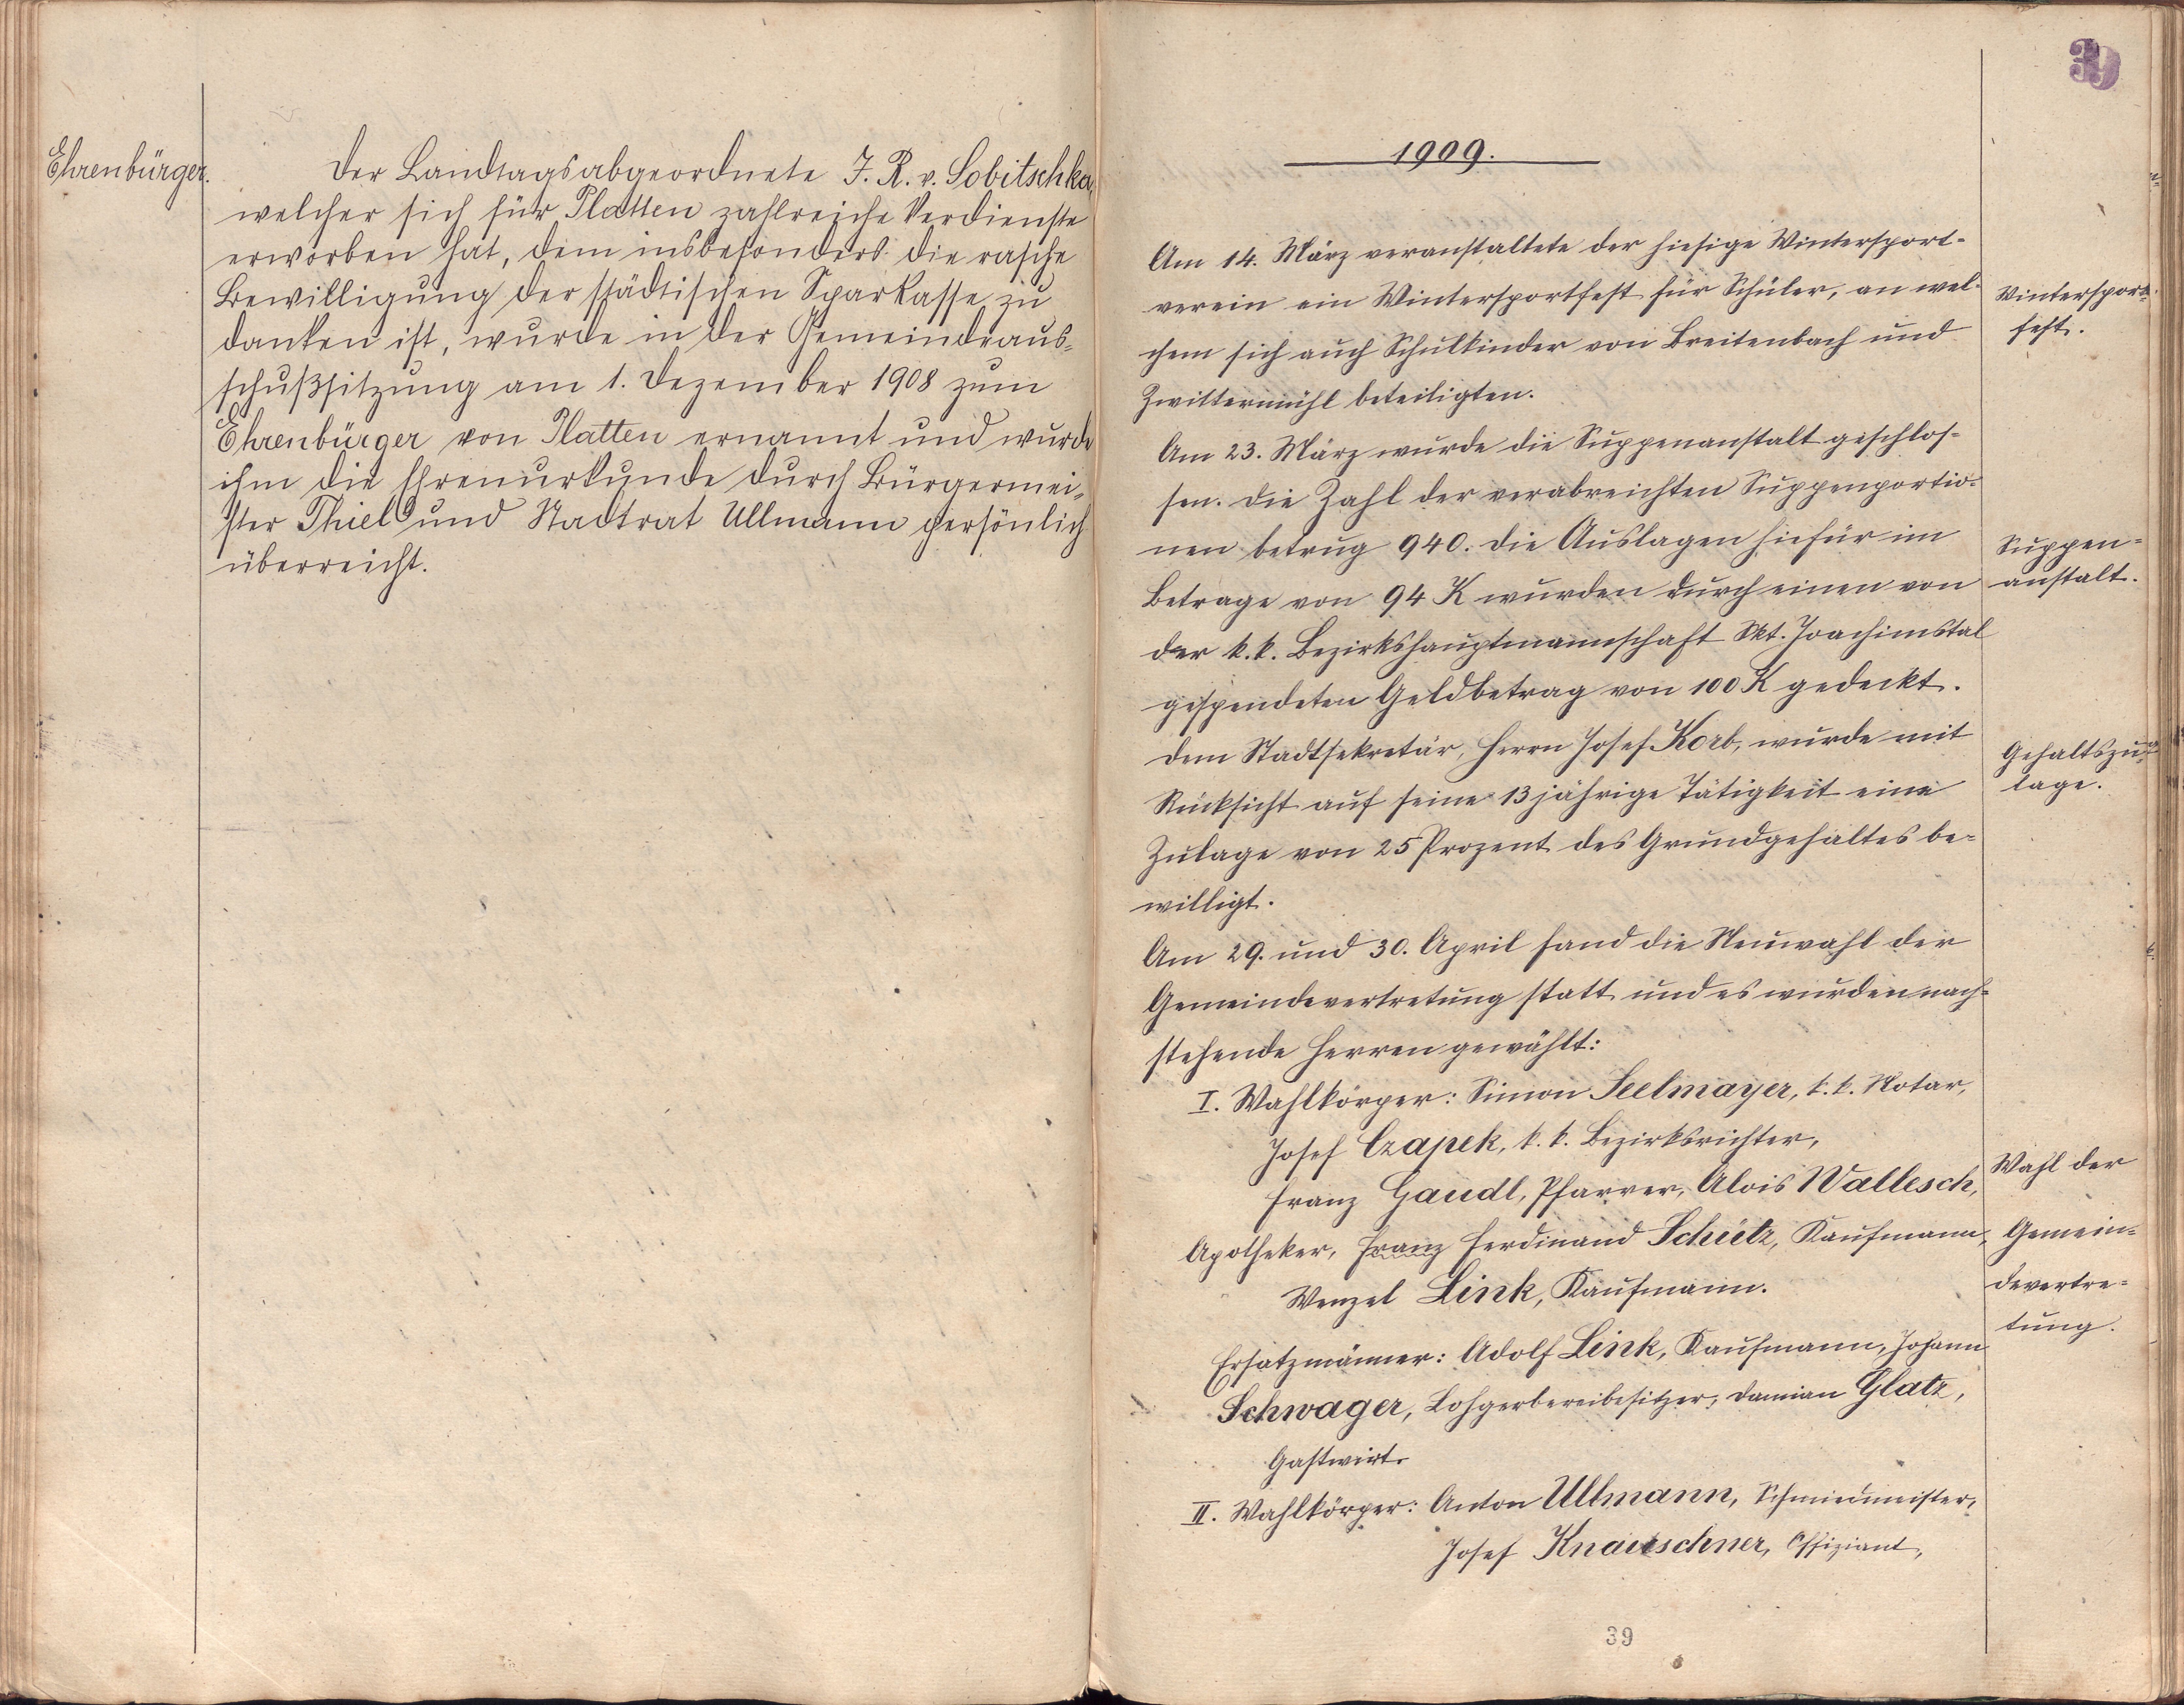 Ehrenbürger.
Der Landtagsabgeordnete J. R. v. Lobitschka,
welcher sich für Platten zahlreiche Verdienste
erworben hat, dem insbesonders die rasche
Bewilligung der städtischen Sparkasse zu
danken ist, wurde in der Gemeindeaus-
schußsitzung am 1. Dezember 1908 zum
Ehrenbürger von Platten ernannt und wurde
ihm die Ehrenurkunde durch Bürgermei-
ster Thiel und Stadtrat Ullmann persönlich
überreicht.
39
1909.
Am 14. März veranstaltete der hiesige Wintersport-
verein ein Wintersportfest für Schüler, an wel-
chem sich auch Schulkinder von Breitenbach und
Zwittermühl beteiligten.
Wintersport-
fest.
Am 23. März wurde die Suppenanstalt geschlos-
sen. Die Zahl der verabreichten Suppenportio-
nen betrug 940. Die Auslagen hiefür im
Betrage von 94 K wurden durch einen von
der k. k. Bezirkshauptmannschaft Skt. Joachimstal
gespendeten Geldbetrag von 100 K gedeckt.
Suppen-
anstalt.
Dem Stadtsekretär, Herrn Josef Korb, wurde mit
Rücksicht auf seine 13 jährige Tätigkeit eine
Zulage von 25 Prozent des Grundgehaltes be-
willigt.
Gehaltszu-
lage.
Am 29. und 30. April fand die Neuwahl der
Gemeindevertretung statt und es wurden nach-
stehende Herren gewählt:
I. Wahlkörper: Simon Seelmayer, k. k. Notar,
Josef Czapek, k. k. Bezirksrichter,
Franz Gaudl, Pfarrer, Alois Wallesch,
Apotheker, Franz Ferdinand Schütz, Kaufmann,
Wenzel Link, Kaufmann.
Ersatzmänner: Adolf Link, Kaufmann, Johann
Schwager, Lohgerbereibesitzer, Damian Glatz,
Gastwirt.
II. Wahlkörper: Anton Ullmann, Schmiedmeister,
Josef Knauschner, Offiziant,
Wahl der
Gemein-
devertre-
tung.
39